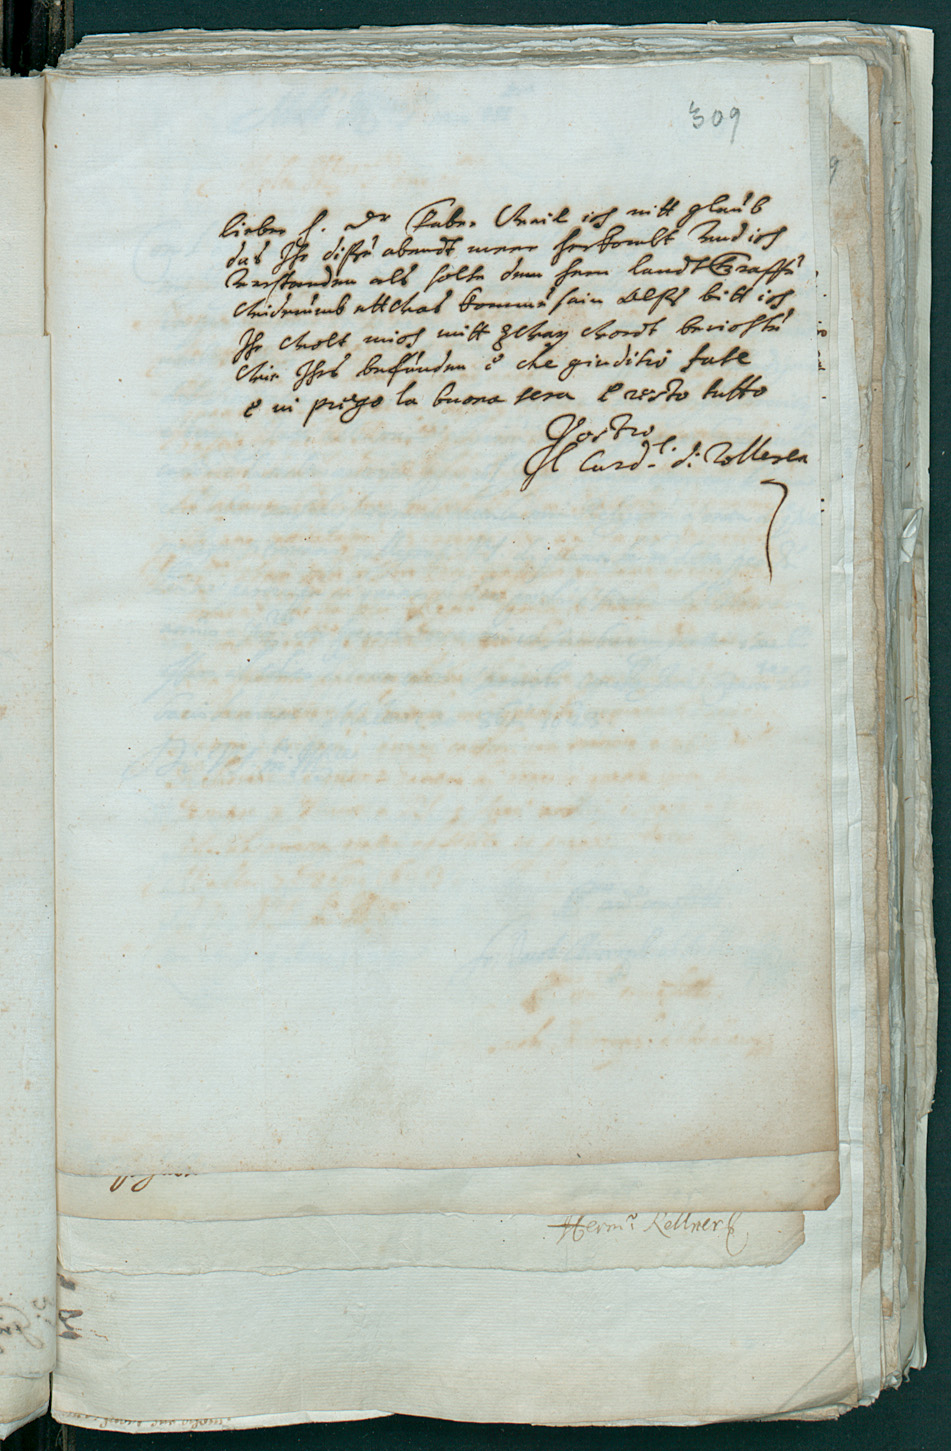 309
lieber h. Dr Faber Weil ich nitt glaub
das Ihr dissen abendt meer herkombt und ich
verstanden als solte dem hern landtGraffen
widerumb ettwas kommen sain Alss bitt ich
Ihr wolt mich mitt zway wordt berichten
wie Ihrs befunden è che giuditio fate
è ui priego la buona sera E resto tutto
Vostro
Il Card.l di Zolleren
Herm. Kellner